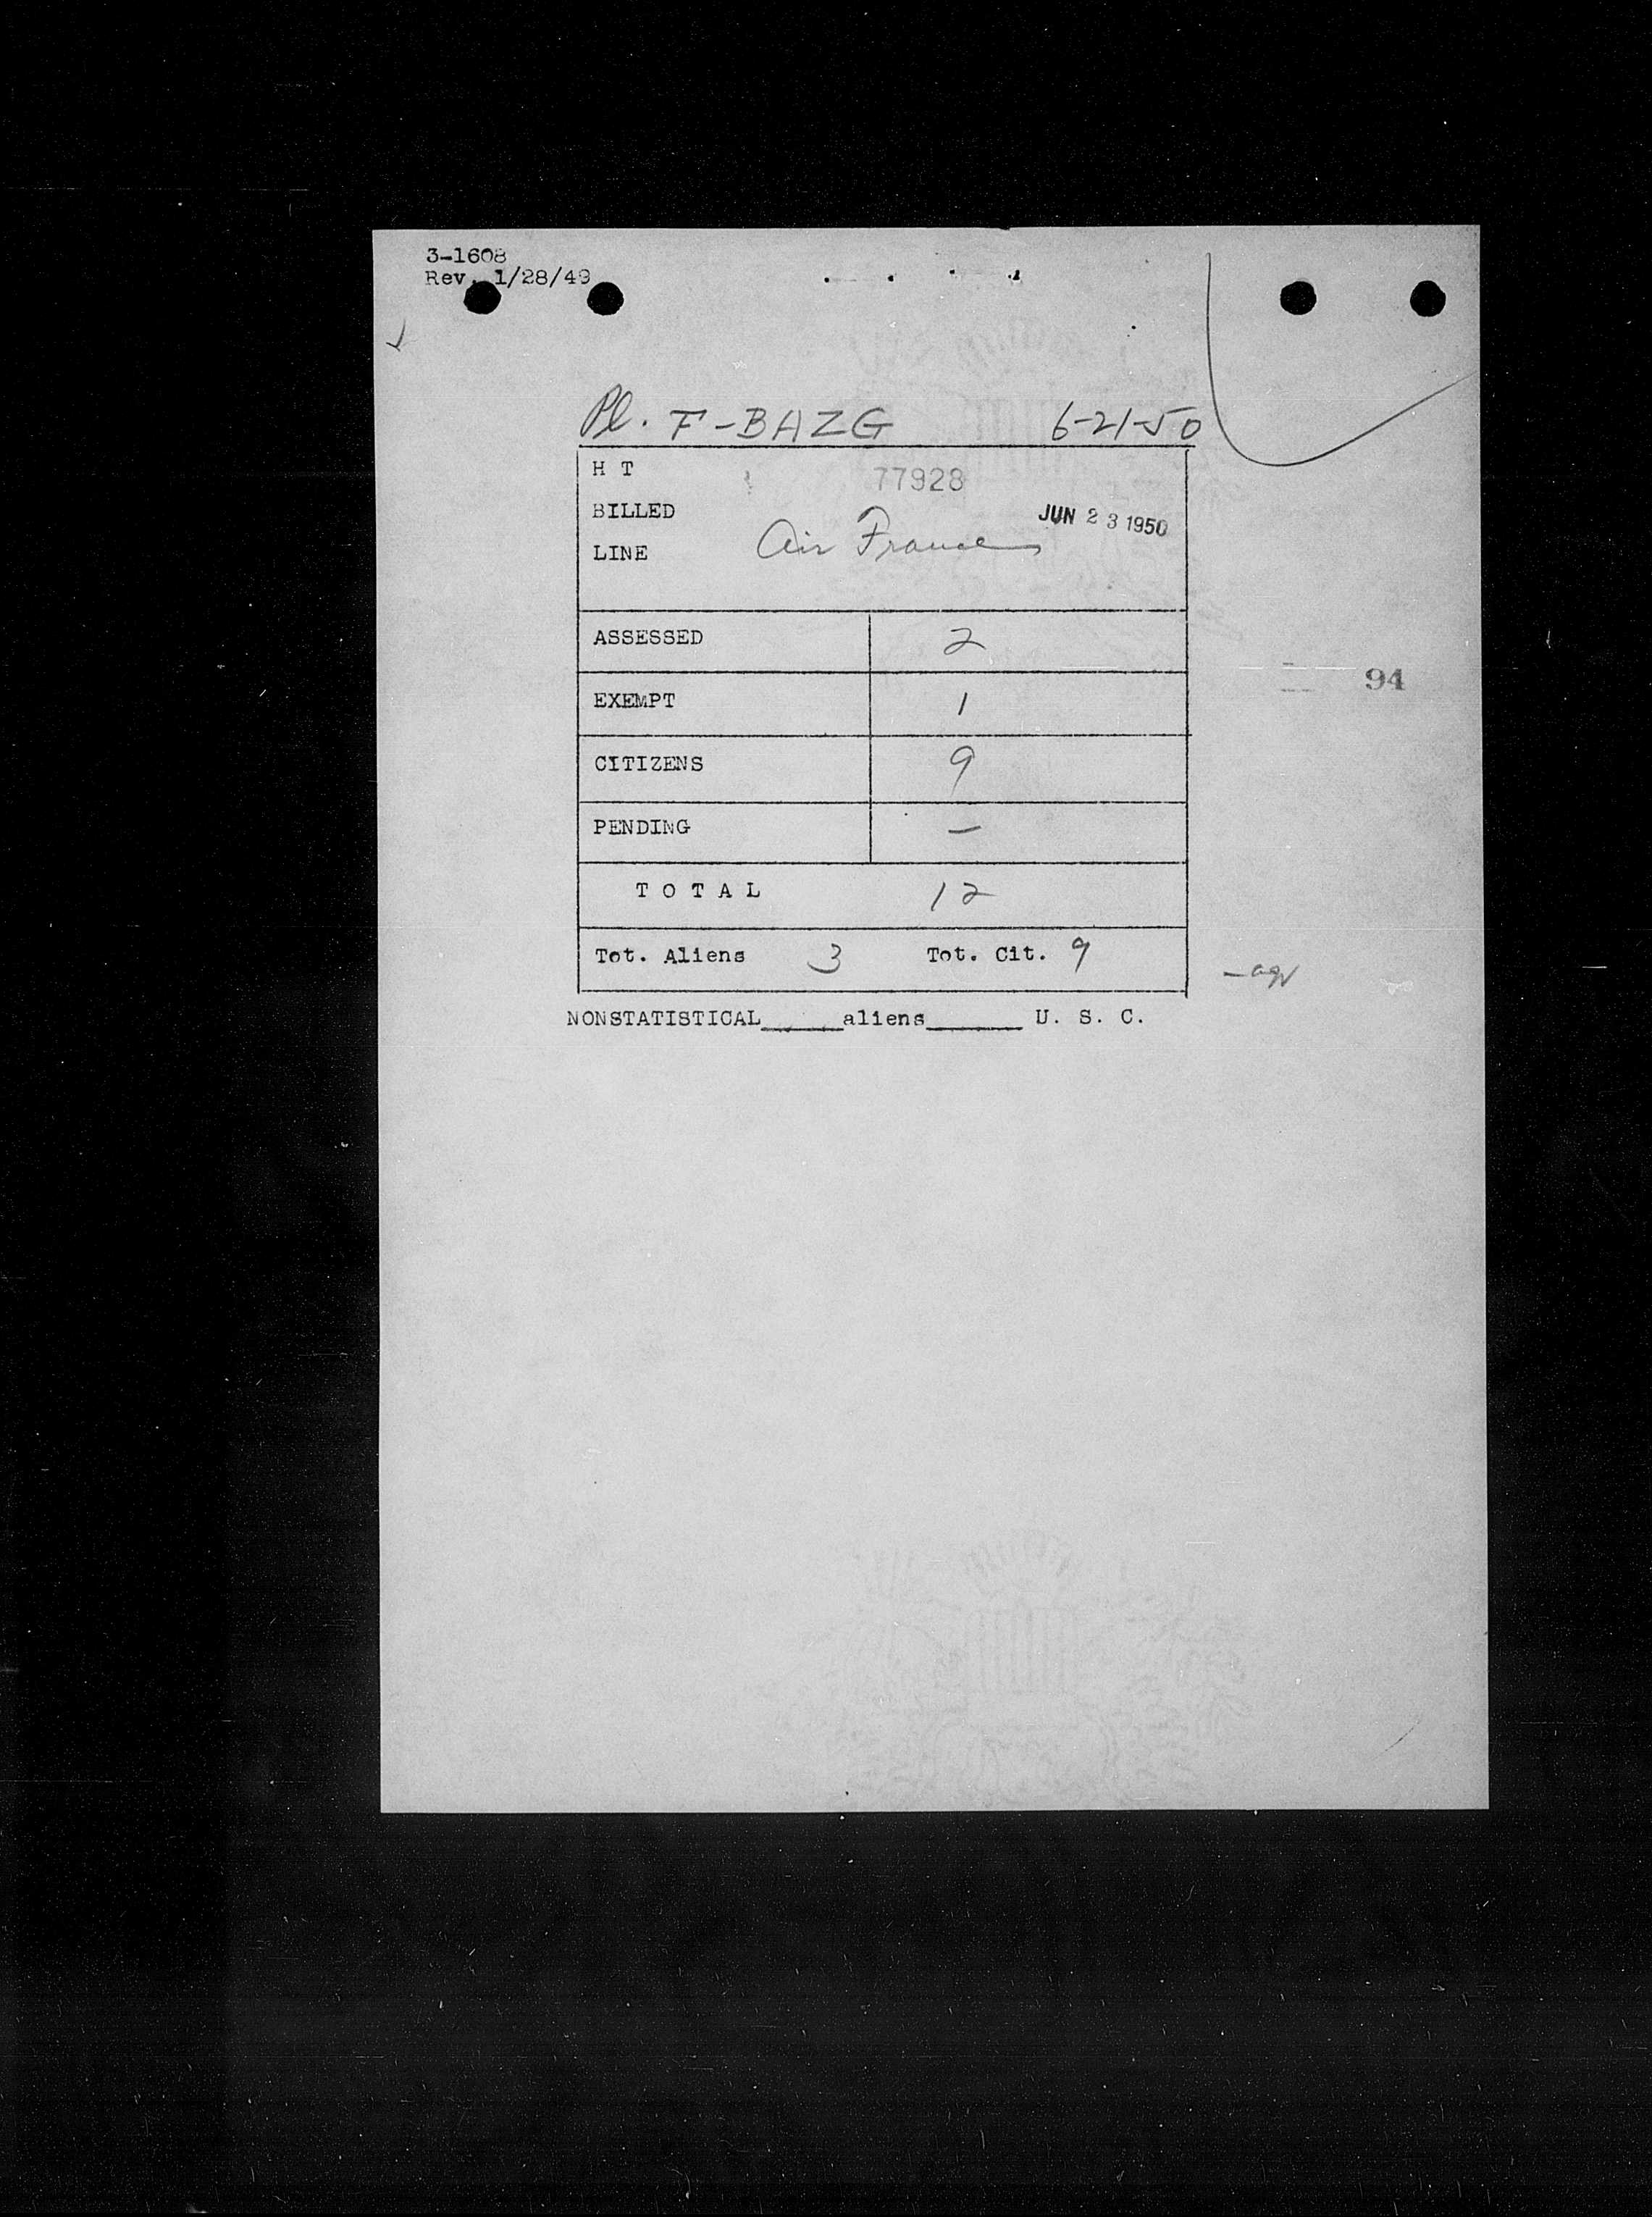 3-1608
Rev. 1/28/49
Pl. F-BAZG 6-21-50
H T 77928
BILLED JUN 23 1950
LINE Air France
ASSESSED 2
EXEMPT 1
94
CITIZENS 9
PENDING —
T O T A L 12
Tot. Aliens 3 Tot. Cit. 9
NONSTATISTICAL_____aliens______ U. S. C.